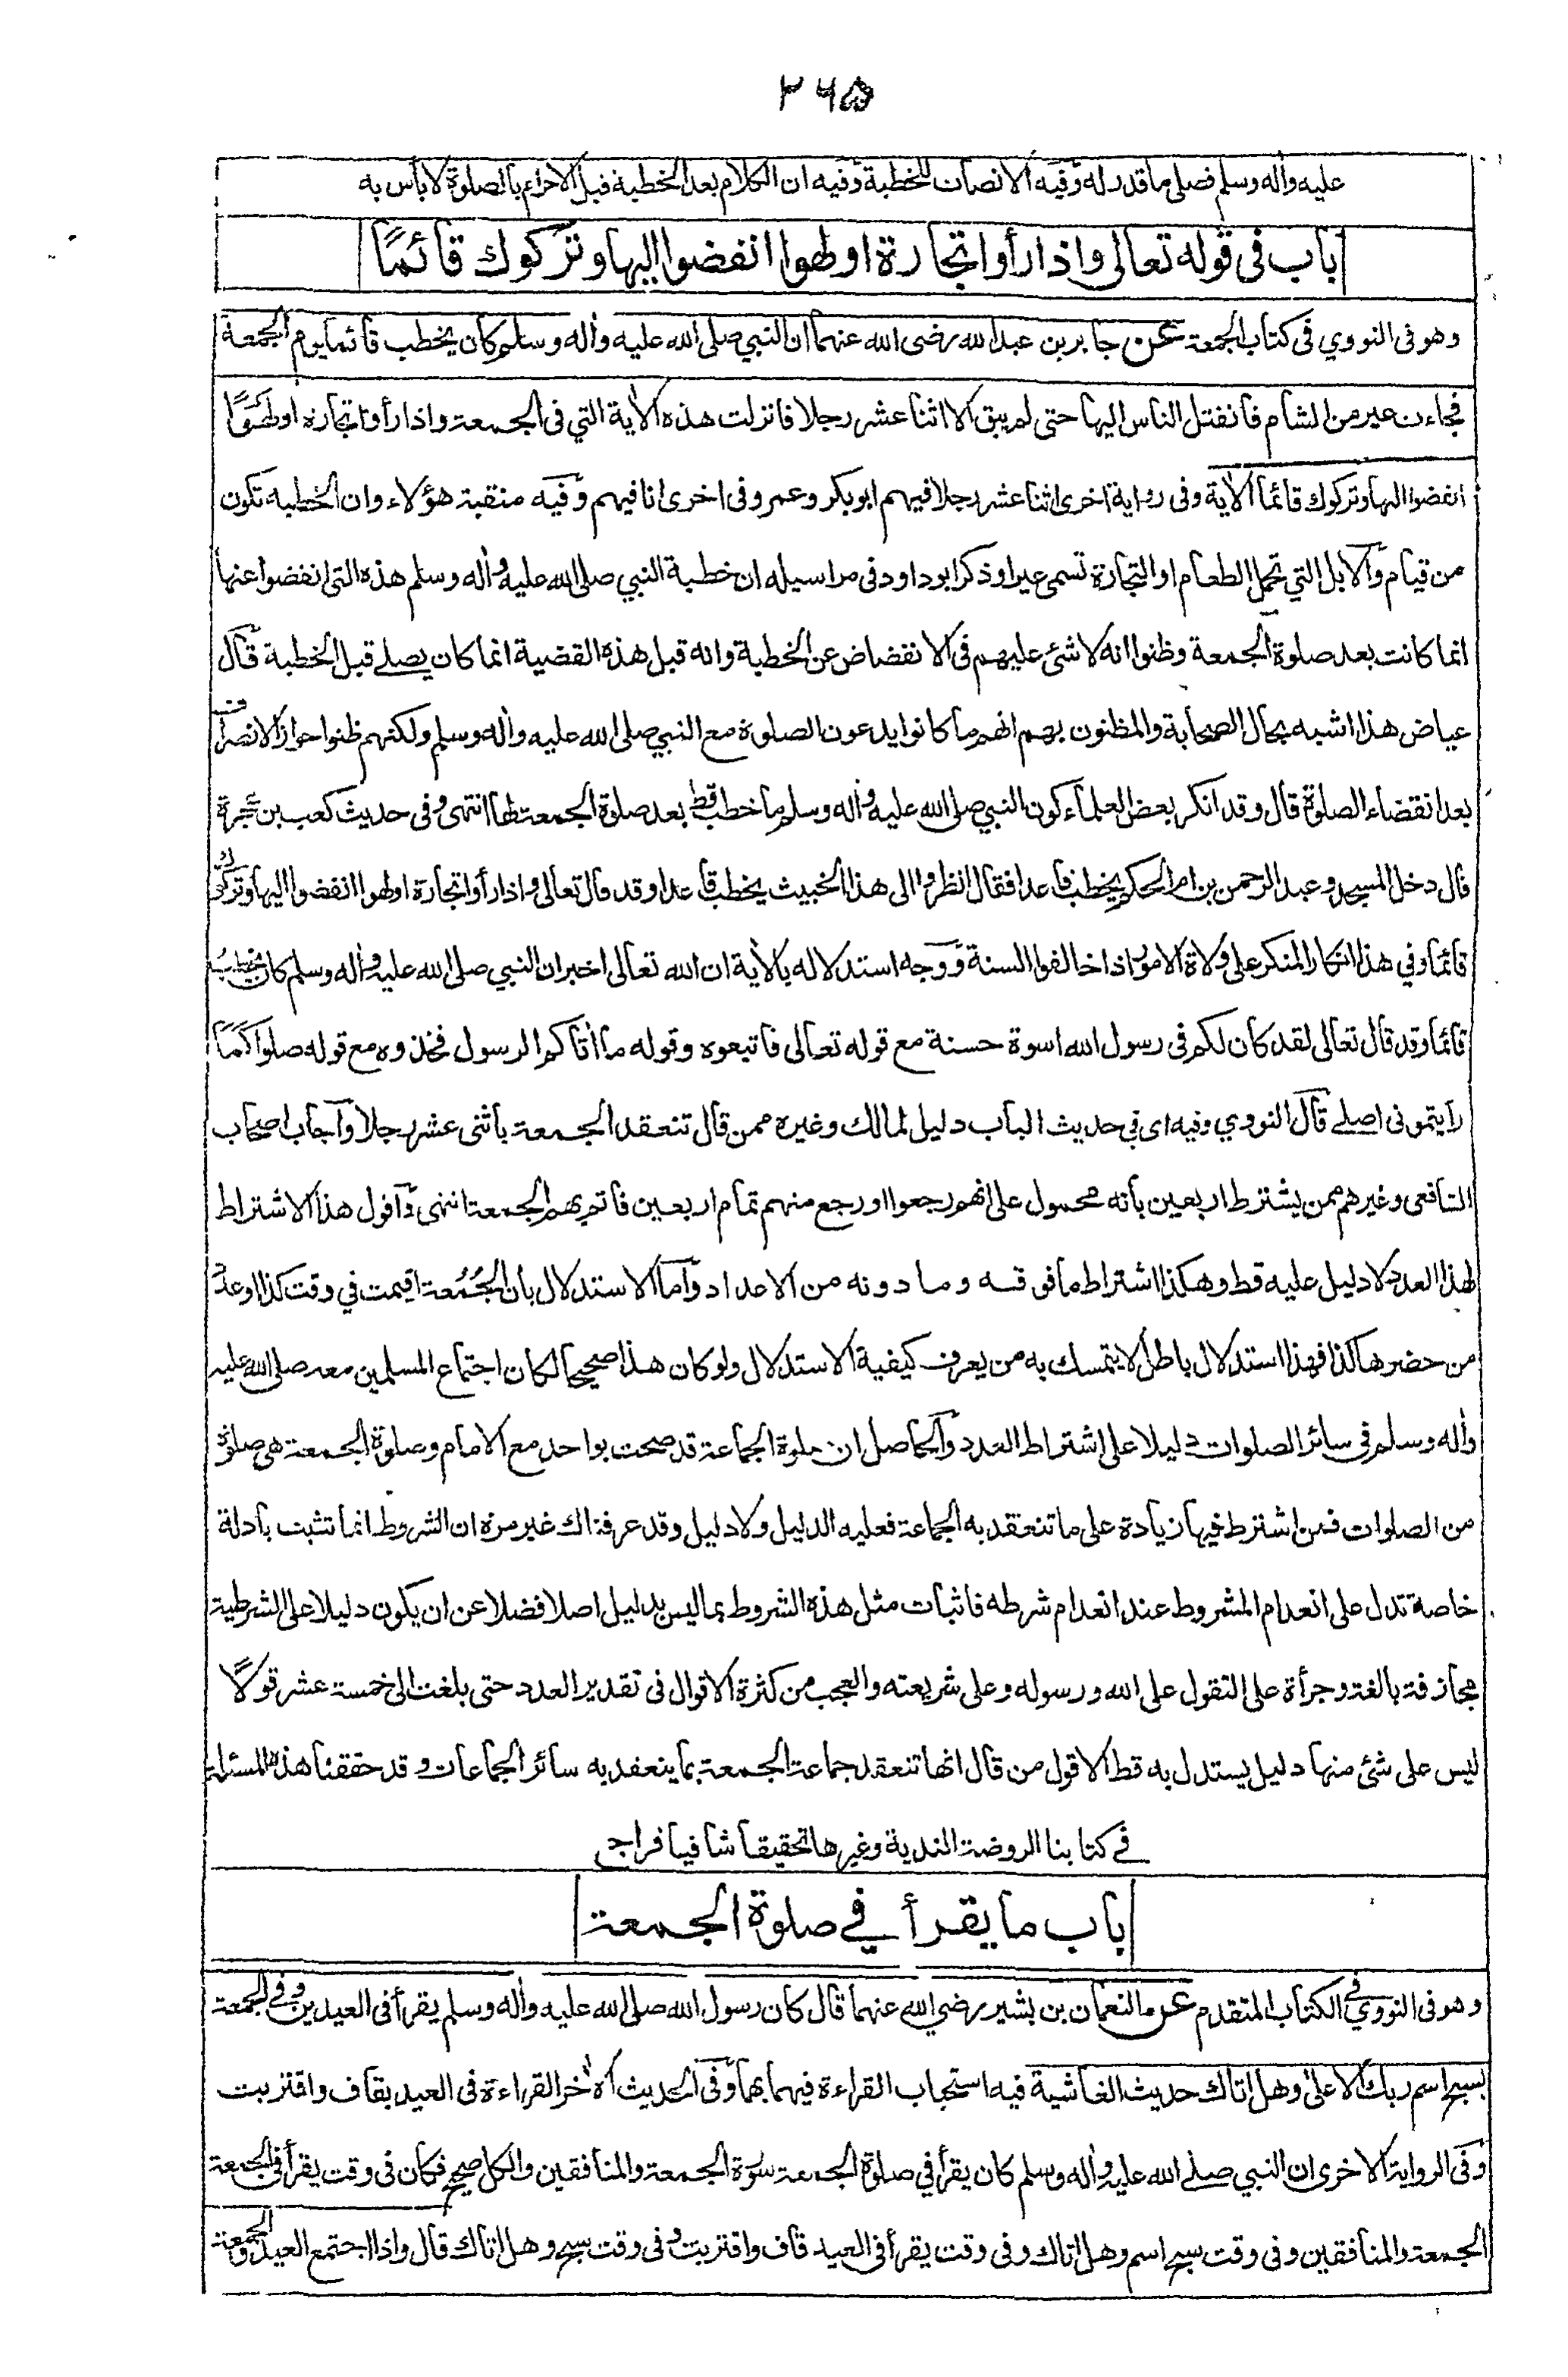 ٢٦٥
عليه واٰله وسلم فصلى ما قدر له وفيه الانصات للخطبة وفيه ان الكلام بعد الخطبة قبل الاحرام بالصلوة لا بأس به
باب فى قوله تعالى واذا رأوا تجارة او لهوا انفضوا اليها وتركوك قائمًا
وهو فى النووي فى كتاب الجمعة عن جابر بن عبد الله رضى الله عنهما ان النبي صلى الله عليه واٰله وسلم كان يخطب قائما يوم الجمعة
فجاءت عير من الشام فانفتل الناس اليها حتى لم يبق الا اثنا عشر رجلا فانزلت هذه الاٰية التي فى الجمعة واذا رأوا تجارة او لهوًا
انفضوا اليها وتركوك قائما الاٰية وفى رواية اخرى اثنا عشر رجلا فيهم ابوبكر وعمر وفى اخرى انا فيهم وفيه منقبة هؤلاء وان الخطبة تكون
من قيام والابل التي تحمل الطعام او التجارة تسمى عيرا وذكر ابو داود فى مراسيله ان خطبة النبي صلى الله عليه واٰله وسلم هذه التى انفضوا عنها
انما كانت بعد صلوة الجمعة وظنوا انه لا شئ عليهم فى الانفضاض عن الخطبة وانه قبل هذه القضية انما كان يصلے قبل الخطبة قال
عياض هذا اشبه بحال الصحابة والمظنون بهم انهم ما كانوا يدعون الصلوة مع النبي صلى الله عليه واٰله وسلم ولكنهم ظنوا جواز الانصراف
بعد انقضاء الصلوة قال وقد انكر بعض العلماء كون النبي صلى الله عليه واٰله وسلم ما خطب قط بعد صلوة الجمعة لها انتهى وفى حديث كعب بن عجرة
قال دخل المسجد وعبد الرحمن بن ام الحكم يخطب قاعدا فقال انظروا الى هذا الخبيث يخطب قاعدا وقد قال تعالى واذا رأوا تجارة او لهوا انفضوا اليها وتركوك
قائما وفي هذا انكار المنكر على ولاة الامور اذا خالفوا السنة ووجه استدلاله بالاٰية ان الله تعالى اخبر ان النبي صلى الله عليه واٰله وسلم كان يخطب
قائما وقد قال تعالى لقد كان لكم فى رسول الله اسوة حسنة مع قوله تعالى فاتبعوه وقوله ما اٰتاكم الرسول فخذوه مع قوله صلوا كما
رايتمونى اصلے قال النووي وفيه اى في حديث الباب دليل لمالك وغيره ممن قال تنعقد الجمعة باثنى عشر رجلا واجاب اصحاب
الشافعى وغيرهم ممن يشترط اربعين بانه محمول على انهم رجعوا او رجع منهم تمام اربعين فاتم بهم الجمعة انتهى واقول هذا الاشتراط
لهذا العدد لا دليل عليه قط وهكذا اشتراط ما فوقه وما دونه من الاعداد واما الاستدلال بان الجُمُعة اقيمت في وقت كذا وعدد
من حضرها كذا فهذا استدلال باطل لا يتمسك به من يعرف كيفية الاستدلال ولو كان هذا صحيحا لكان اجتماع المسلمين معه صلى الله عليه
واٰله وسلم فى سائر الصلوات دليلا على اشتراط العدد والحاصل ان صلوة الجماعة قد صحت بواحد مع الامام وصلوة الجمعة هى صلوة
من الصلوات فمن اشترط فيها زيادة على ما تنعقد به الجماعة فعليه الدليل ولا دليل وقد عرفناك غير مرة ان الشروط انما تثبت بادلة
خاصة تدل على انعدام المشروط عند انعدام شرطه فاثبات مثل هذه الشروط بما ليس بدليل اصلا فضلا عن ان يكون دليلا على الشرطية
مجازفة بالغة وجرأة على التقول على الله ورسوله وعلى شريعته والعجب من كثرة الاقوال فى تقدير العدد حتى بلغت الى خمسة عشر قولًا
ليس على شئ منها دليل يستدل به قط الا قول من قال انها تنعقد جماعة الجمعة بما ينعقد به سائر الجماعات وقد حققنا هذه المسئلة
في كتابنا الروضة الندية وغيرها تحقيقا شافيا فراجع
باب ما يقرأ في صلوة الجمعة
وهو فى النووي في الكتاب المتقدم عن النعمان بن بشير رضي الله عنهما قال كان رسول الله صلى الله عليه واٰله وسلم يقرأ فى العيدين وفي الجمعة
بسبح اسم ربك الاعلىٰ وهل اتاك حديث الغاشية فيه استحباب القراءة فيهما بهما وفى الحديث الاٰخر القراءة فى العيد بقاف واقتربت
وفى الرواية الاخرى ان النبي صلے الله عليه واٰله وسلم كان يقرأ في صلوة الجمعة سورة الجمعة والمنافقين والكل صحيح فكان فى وقت يقرأ فى الجمعة
الجمعة والمنافقين وفى وقت سبح اسم وهل اتاك وفى وقت يقرأ فى العيد قاف واقتربت وفى وقت سبح وهل اتاك قال واذا اجتمع العيد والجمعة